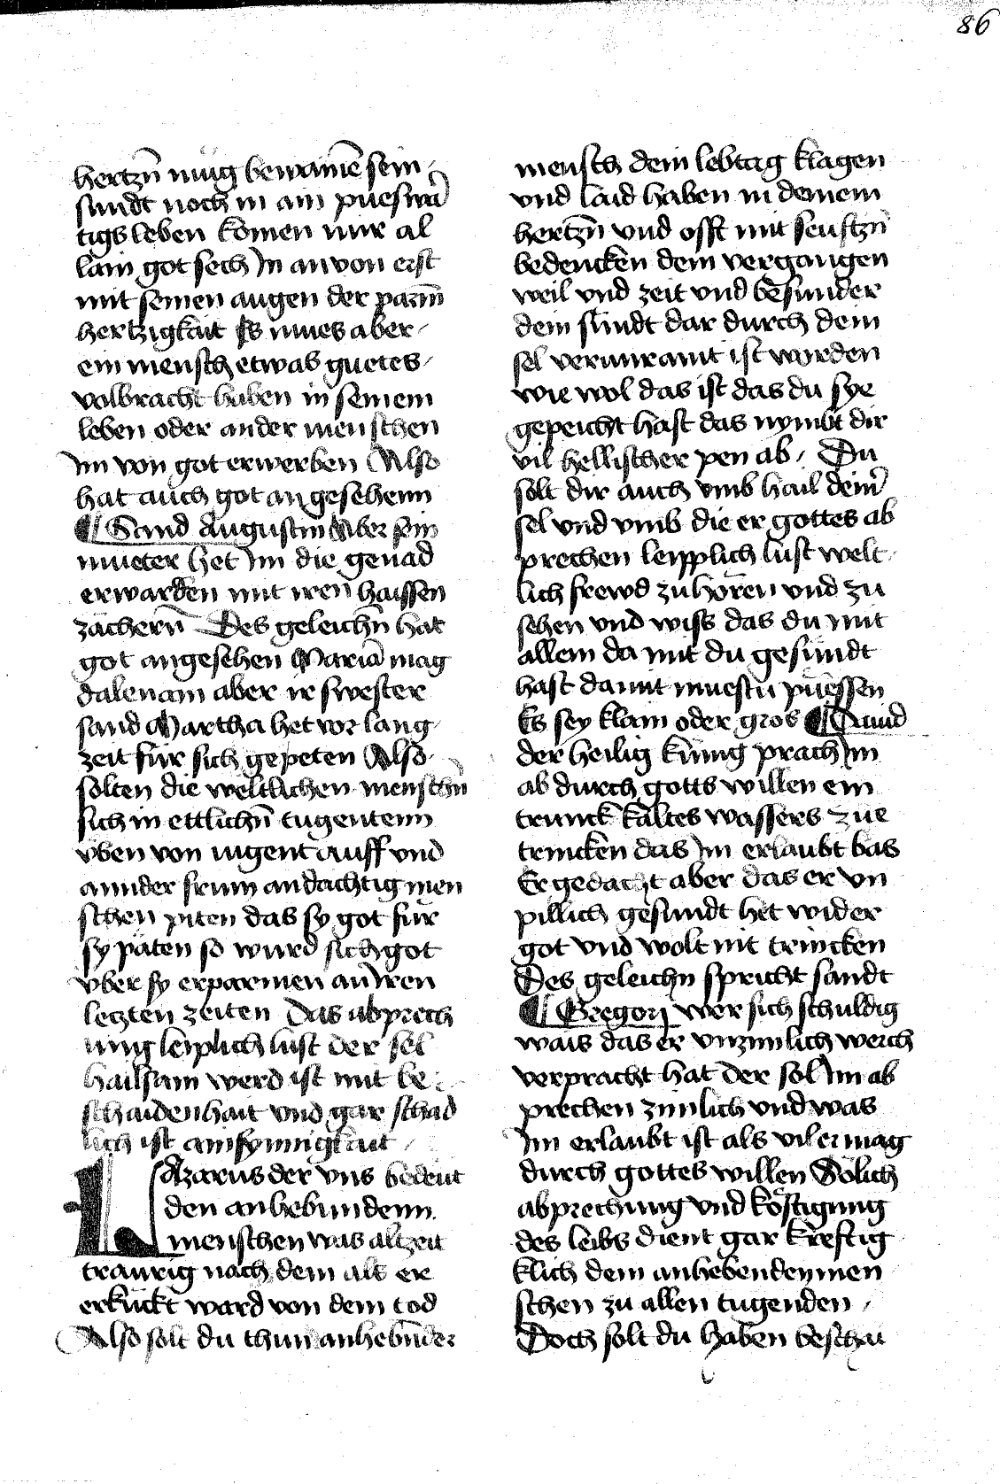 86
hertzn̄ müg bewainē sein
sundt noch in ain pueswa͂
tigs leben komen nur al
lain got sech In an von erst
mit seinen augen der parm̄
hertzigkait Es mues aber
ein mensch etwas guetes
volbracht haben in seinem
leben oder ander menschen
im von got erwerben Also
hat auch got angesehenn
¶ Sand Augustin Aber sein
mueter het Im die genad
erwarden mit iren haissen
zächern̄ Des geleichn̄ hat
got angesehen Mariā mag
dalenam aber ir swester
sand Martha het vor lang
zeit für sich gepeten Also
solten die weltlichen menschn̄
sich in ettlichn̄ tugentenn
vben von iugent auff vnd
annder frum andachtig men
schen piten das sy got für
sy päten so wurd sich got
vber sy erparmen an Iren
letzten zeiten Das abprech
ung leiplich lust der sel
hailsam werd ist mit be
schaidenhait vnd gar schad
lich ist ainsynnigkait
LAzarus der vns bedeut
den anhebundenn
menschen was altzeit
traurig nach dem als er
erkückt ward von dem tod
Also solt du thun anhebn̄der
mensch dein lebtag klagen
vnd laid haben in deinem
hertzn̄ vnd offt mit seuftzn̄
bedencken dein vergangen
weil vnd zeit vnd besunder
dein sündt dar durch dein
sel verunraint ist worden
wie wol das ist das du sye
gepeicht hast das nymbt dir
vil hellischer pen ab Du
solt dir auch vmb hail dein͛
sel vnd vmb die er gottes ab
prechen leipplich lust welt
lich frewd zu hören vnd zu
sehen vnd wiss das du mit
allem da mit du gesündt
hast damit muestu püessen
Es sey klain oder gros ¶ Dauid
der heilig künig prach Im
ab durch gotts willen ein
trunck kaltes wassers zue
trincken das Im erlaubt bas
Er gedacht aber das er vn
pillich gesundt het wider
got vnd wolt nit trincken
Des geleichn spricht sandt
¶ Gregorj wer sich schuldig
wais das er vnzimlich werch
verpracht hat der sol Im ab
prechen zimlich vnd was
Im erlaubt ist als vil er mag
durch gottes willen Sölich
abprechung vnd köstigung
des leibs dient gar kreftig
klich dem anhebenden men
schen zu allen tugenden
Doch solt du haben beschai